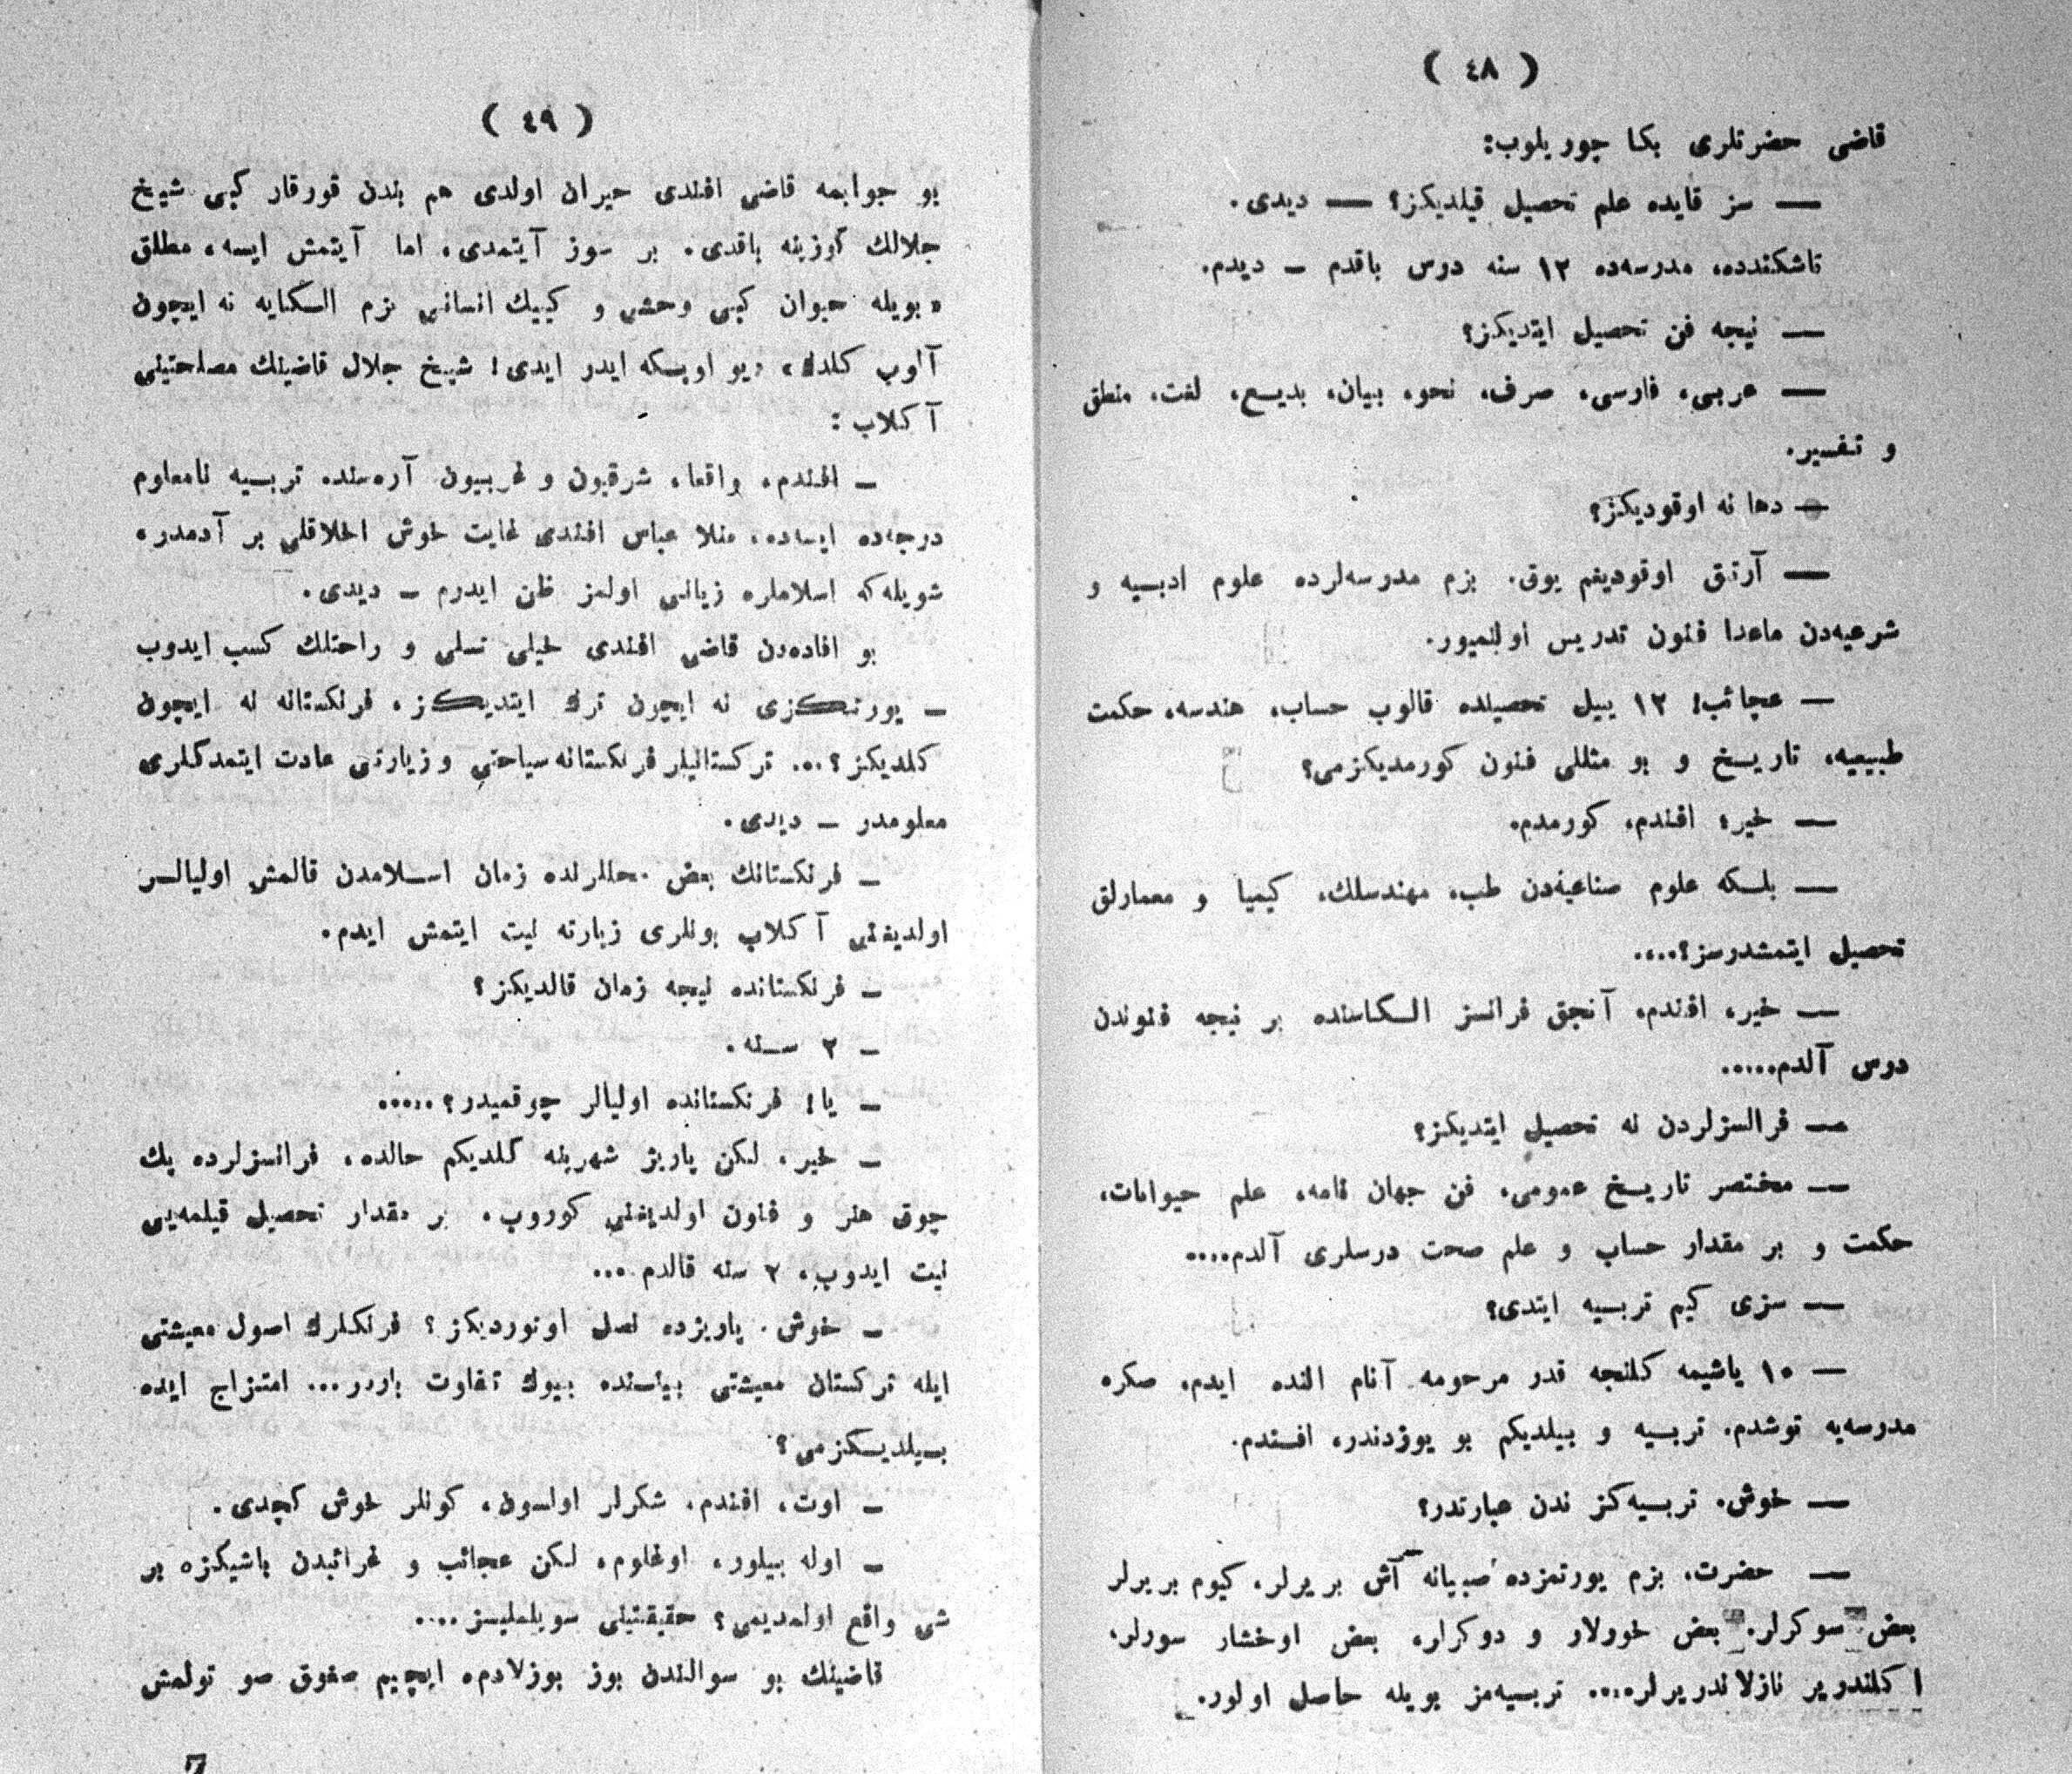 ( ٤٨ )
قاضی حضرتلری بكا چوريلوب:
— سز قايده علم تحصيل قيلديكز؟ — ديدی.
تاشكندده، مدرسه‌ده ١٢ سنه درس باقدم — ديدم.
— نيجه فن تحصيل ايتديكز؟
— عربی، فارسی، صرف، نحو، بيان، بديـع، لغت، منطق
و تفسير.
— دها نه اوقوديكز؟
— آرتق اوقوديغم يوق. بزم مدرسه‌لرده علوم ادبـيه و
شرعيه‌دن ماعدا فنون تدريس اولنميور.
— عجائب! ١٢ ييل تحصيلده قالوب حساب، هندسه، حكمت
طبيعيه، تاريـخ و بو مثللی فنون كورمديكزمی؟
— خير، افندم، كورمدم.
— بلـكه علوم صناعيه‌دن طب، مهندسلك، كيميا و معمارلق
تحصيل ايتمشدرسز؟....
— خير، افندم، آنجق فرانسز الـكاسنده بر نيجه فنوندن
درس آلدم.....
— فرانسزلردن نه تحصيل ايتديكز؟
— مختصر تاريـخ عمومی، فن جهان نامه، علم حيوانات،
حكمت و بر مقدار حساب و علم صحت درسلری آلدم....
— سزی كيم تربـيه ايتدی؟
— ١٠ ياشيمه كلنجه قدر مرحومه آنام النده ايدم، صكره
مدرسه‌يه توشدم. تربـيه و بيلديكم بو يوزدندر، افـندم.
— خوش. تربـيه‌كز ندن عبارتدر؟
— حضرت، بزم يورتمزده صبيانه آش بريرلر، كيوم بريرلر
بعض سوكرلر. بعض خورلار و دوكرلر، بعض اوخشار سورلر.
اكلندرير نازلاندريرلر..... تربـيه‌مز بويله حاصل اولور.
( ٤٩ )
بو جوابمه قاضی افندی حيران اولدی هم بندن قورقار كبی شيخ
جلالك كوزينه باقدی. بر سوز آيتمدی، اما آيتمش ايسه، مطلق
«بويله حيوان كبی وحشی و كييك انسانی بزم الـكايه نه ايچون
آلوب كلدك» ديو اوپـكه ايدر ايدی! شيخ جلال قاضينك مصلحتينی
آكلاب:
— افندم، واقعا، شرقيون و غربيون آره‌سنده تربـيه نامعلوم
درجه‌ده ايسه‌ده، منلا عباس افندی غايت خوش اخلاقلی بر آدمدر،
شويله‌كه اسلاملره زيانی اولمز ظن ايدرم — ديدی.
بو افاده‌دن قاضی افندی خيلی تسلی و راحتلك كسب ايدوب
— يورتـكزی نه ايچون ترك ايتديـكز، فرنكستانه نه ايچون
كلديكز؟... تركستانيلر فرنكستانه سياحتی و زيارتی عادت ايتمدكلری
معلومدر — ديدی.
— فرنكستانك بعض محللرنده زمان اسـلامدن قالمش اوليالـر
اولديغنی آكلاب بونلری زيارته نيت ايتمش ايدم.
— فرنكستانده نيجه زمان قالديكز؟
— ٢ سـنه.
— يا! فرنكستانده اوليالر چوقميدر؟.....
— خير، لـكن پاريژ شهرينه كلديكم حالده، فرانسزلرده پك
چوق هنر و فنون اولديغنی كوروب، بر مقدار تحصيل قيلمه‌يی
نيت ايدوب، ٢ سنه قالدم...
— خوش. پاريژده نصل اوتورديكز؟ فرنكلرك اصول معيشتی
ايله تركستان معيشتی بيننده بيوك تفاوت باردر... امتزاج ايده
بـيلديـكزمی؟
— اوت، افندم، شكرلر اولسون، كونلر خوش كچدی.
— اوله بيلور، اوغلوم، لـكن عجائب و غرائبدن باشيكزه بر
شی واقع اولمديمی؟ حقيقتينی سويلمليسز....
قاضينك بو سوالندن بوز بوزلادم، ايچيم صغوق صو تولمش
7